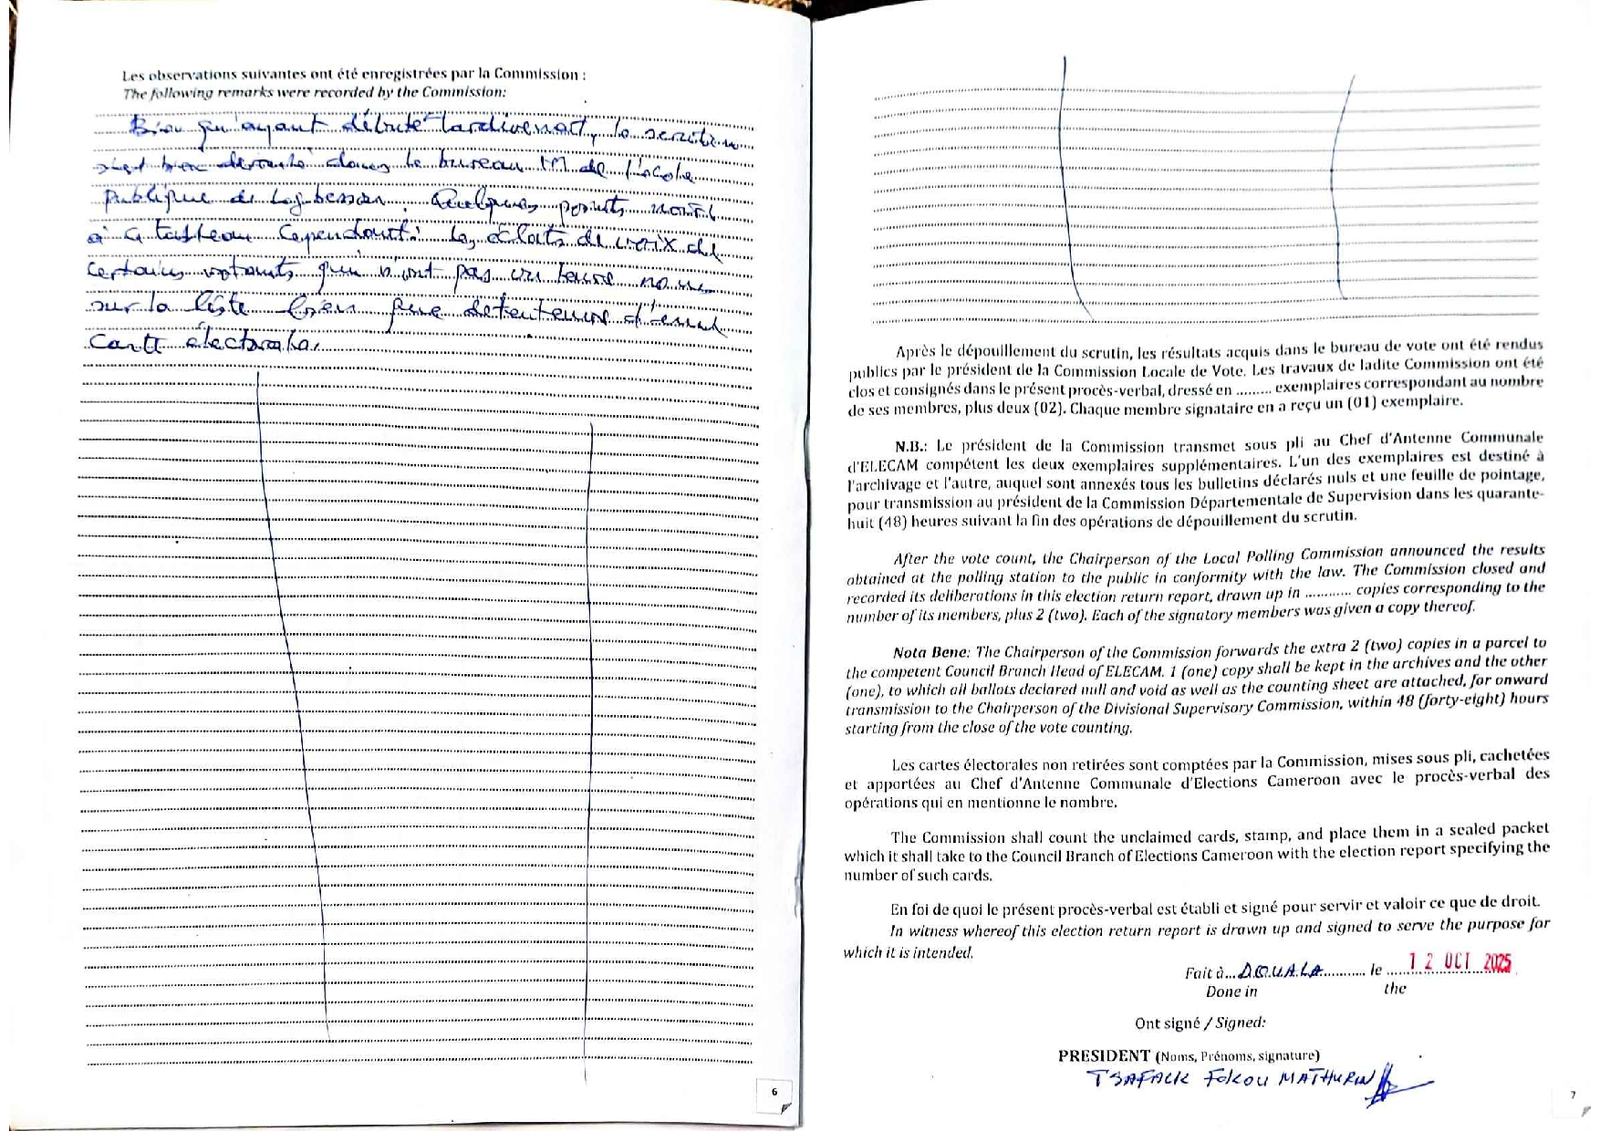 Les observations suivantes ont été enregistrées par la Commission :
The following remarks were recorded by the Commission:
Bien qu'ayant débuté tardivement, le scrutin
s'est bien déroulé dans le bureau M de l'école
Publique de Logbessou. Quelques points noirs
à ce tableau cependant : les éclats de voix de
certains votants qui n'ont pas vu leurs noms
sur la liste bien que détenteurs d'une
carte électorale.
6
Après le dépouillement du scrutin, les résultats acquis dans le bureau de vote ont été rendus
publics par le président de la Commission Locale de Vote. Les travaux de ladite Commission ont été
clos et consignés dans le présent procès-verbal, dressé en ......... exemplaires correspondant au nombre
de ses membres, plus deux (02). Chaque membre signataire en a reçu un (01) exemplaire.
N.B.: Le président de la Commission transmet sous pli au Chef d'Antenne Communale
d'ELECAM compétent les deux exemplaires supplémentaires. L'un des exemplaires est destiné à
l'archivage et l'autre, auquel sont annexés tous les bulletins déclarés nuls et une feuille de pointage,
pour transmission au président de la Commission Départementale de Supervision dans les quarante-
huit (48) heures suivant la fin des opérations de dépouillement du scrutin.
After the vote count, the Chairperson of the Local Polling Commission announced the results
obtained at the polling station to the public in conformity with the law. The Commission closed and
recorded its deliberations in this election return report, drawn up in ........... copies corresponding to the
number of its members, plus 2 (two). Each of the signatory members was given a copy thereof.
Nota Bene: The Chairperson of the Commission forwards the extra 2 (two) copies in a parcel to
the competent Council Branch Head of ELECAM. 1 (one) copy shall be kept in the archives and the other
(one), to which all ballots declared null and void as well as the counting sheet are attached, for onward
transmission to the Chairperson of the Divisional Supervisory Commission, within 48 (forty-eight) hours
starting from the close of the vote counting.
Les cartes électorales non retirées sont comptées par la Commission, mises sous pli, cachetées
et apportées au Chef d'Antenne Communale d'Elections Cameroon avec le procès-verbal des
opérations qui en mentionne le nombre.
The Commission shall count the unclaimed cards, stamp, and place them in a sealed packet
which it shall take to the Council Branch of Elections Cameroon with the election report specifying the
number of such cards.
En foi de quoi le présent procès-verbal est établi et signé pour servir et valoir ce que de droit.
In witness whereof this election return report is drawn up and signed to serve the purpose for
which it is intended.
Fait à...DOUALA.......... le ....12 OCT 2025
Done in the
Ont signé / Signed:
PRESIDENT (Noms, Prénoms, signature)
TSAFACK FOKOU MATHURIN
7